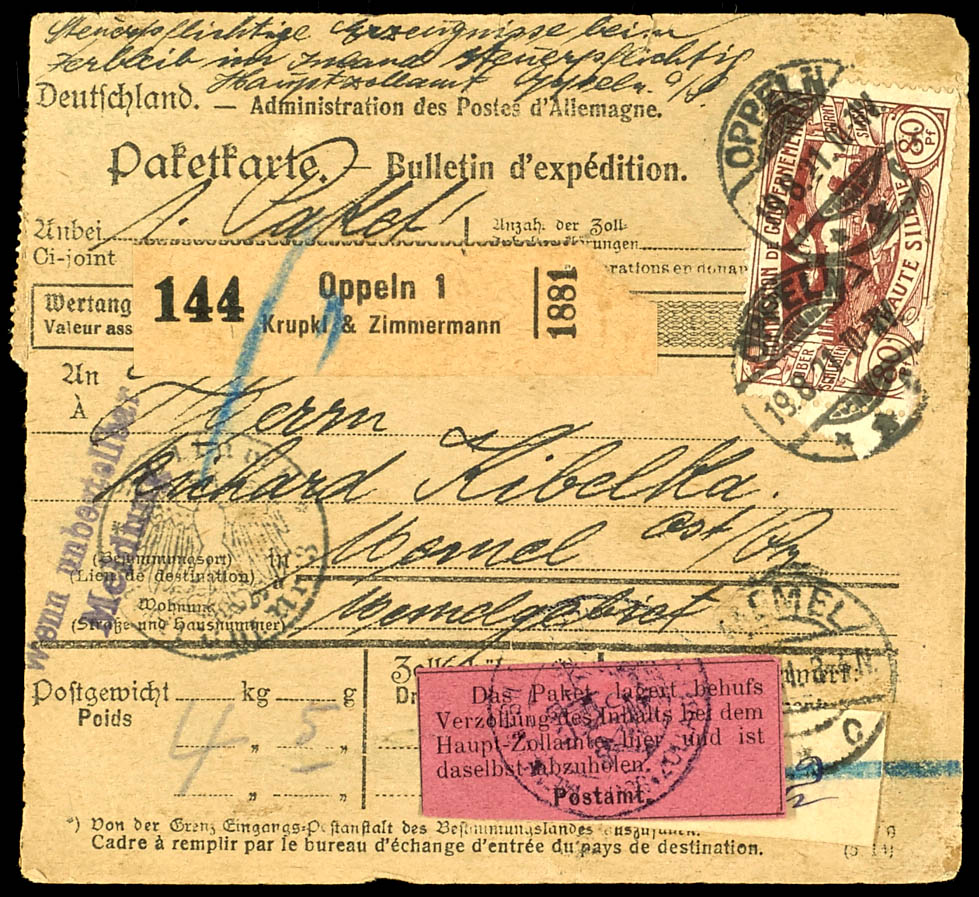 Steuerpflichtige Erzeugnisse beim
Verbleib im Inland steuerpflichtig
Hauptzollamt Oppeln O/S
Deutschland. — Administration des Postes d'Allemagne.
Paketkarte. — Bulletin d'expédition.
Anbei 1 Paket
Anzah. der Zoll-
Ci-joint
rations en douan
Wertang
Valeur ass
144
Oppeln 1
Krupki & Zimmermann
1881
OPPELN
COMMISSION DE GOUVERNEMENT
HAUTE SILESIE
OBER
80 Pf
80
19.8.21.
An
À
Herrn
Richard Kibelka.
Memel Ost/Pr
(Bestimmungsort)
(Lieu de destination)
in
Memelgebiet
Wohnung
(Straße und Hausnummer)
wenn unbestellbar
Meldung
MEMEL
Postgewicht kg g
Poids
4 5
Das Paket lagert behufs
Verzollung des Inhalts bei dem
Haupt-Zollamte hier und ist
daselbst abzuholen.
Postamt.
*) Von der Grenz-Eingangs-Postanstalt des Bestimmungslandes auszufüllen.
Cadre à remplir par le bureau d'échange d'entrée du pays de destination.